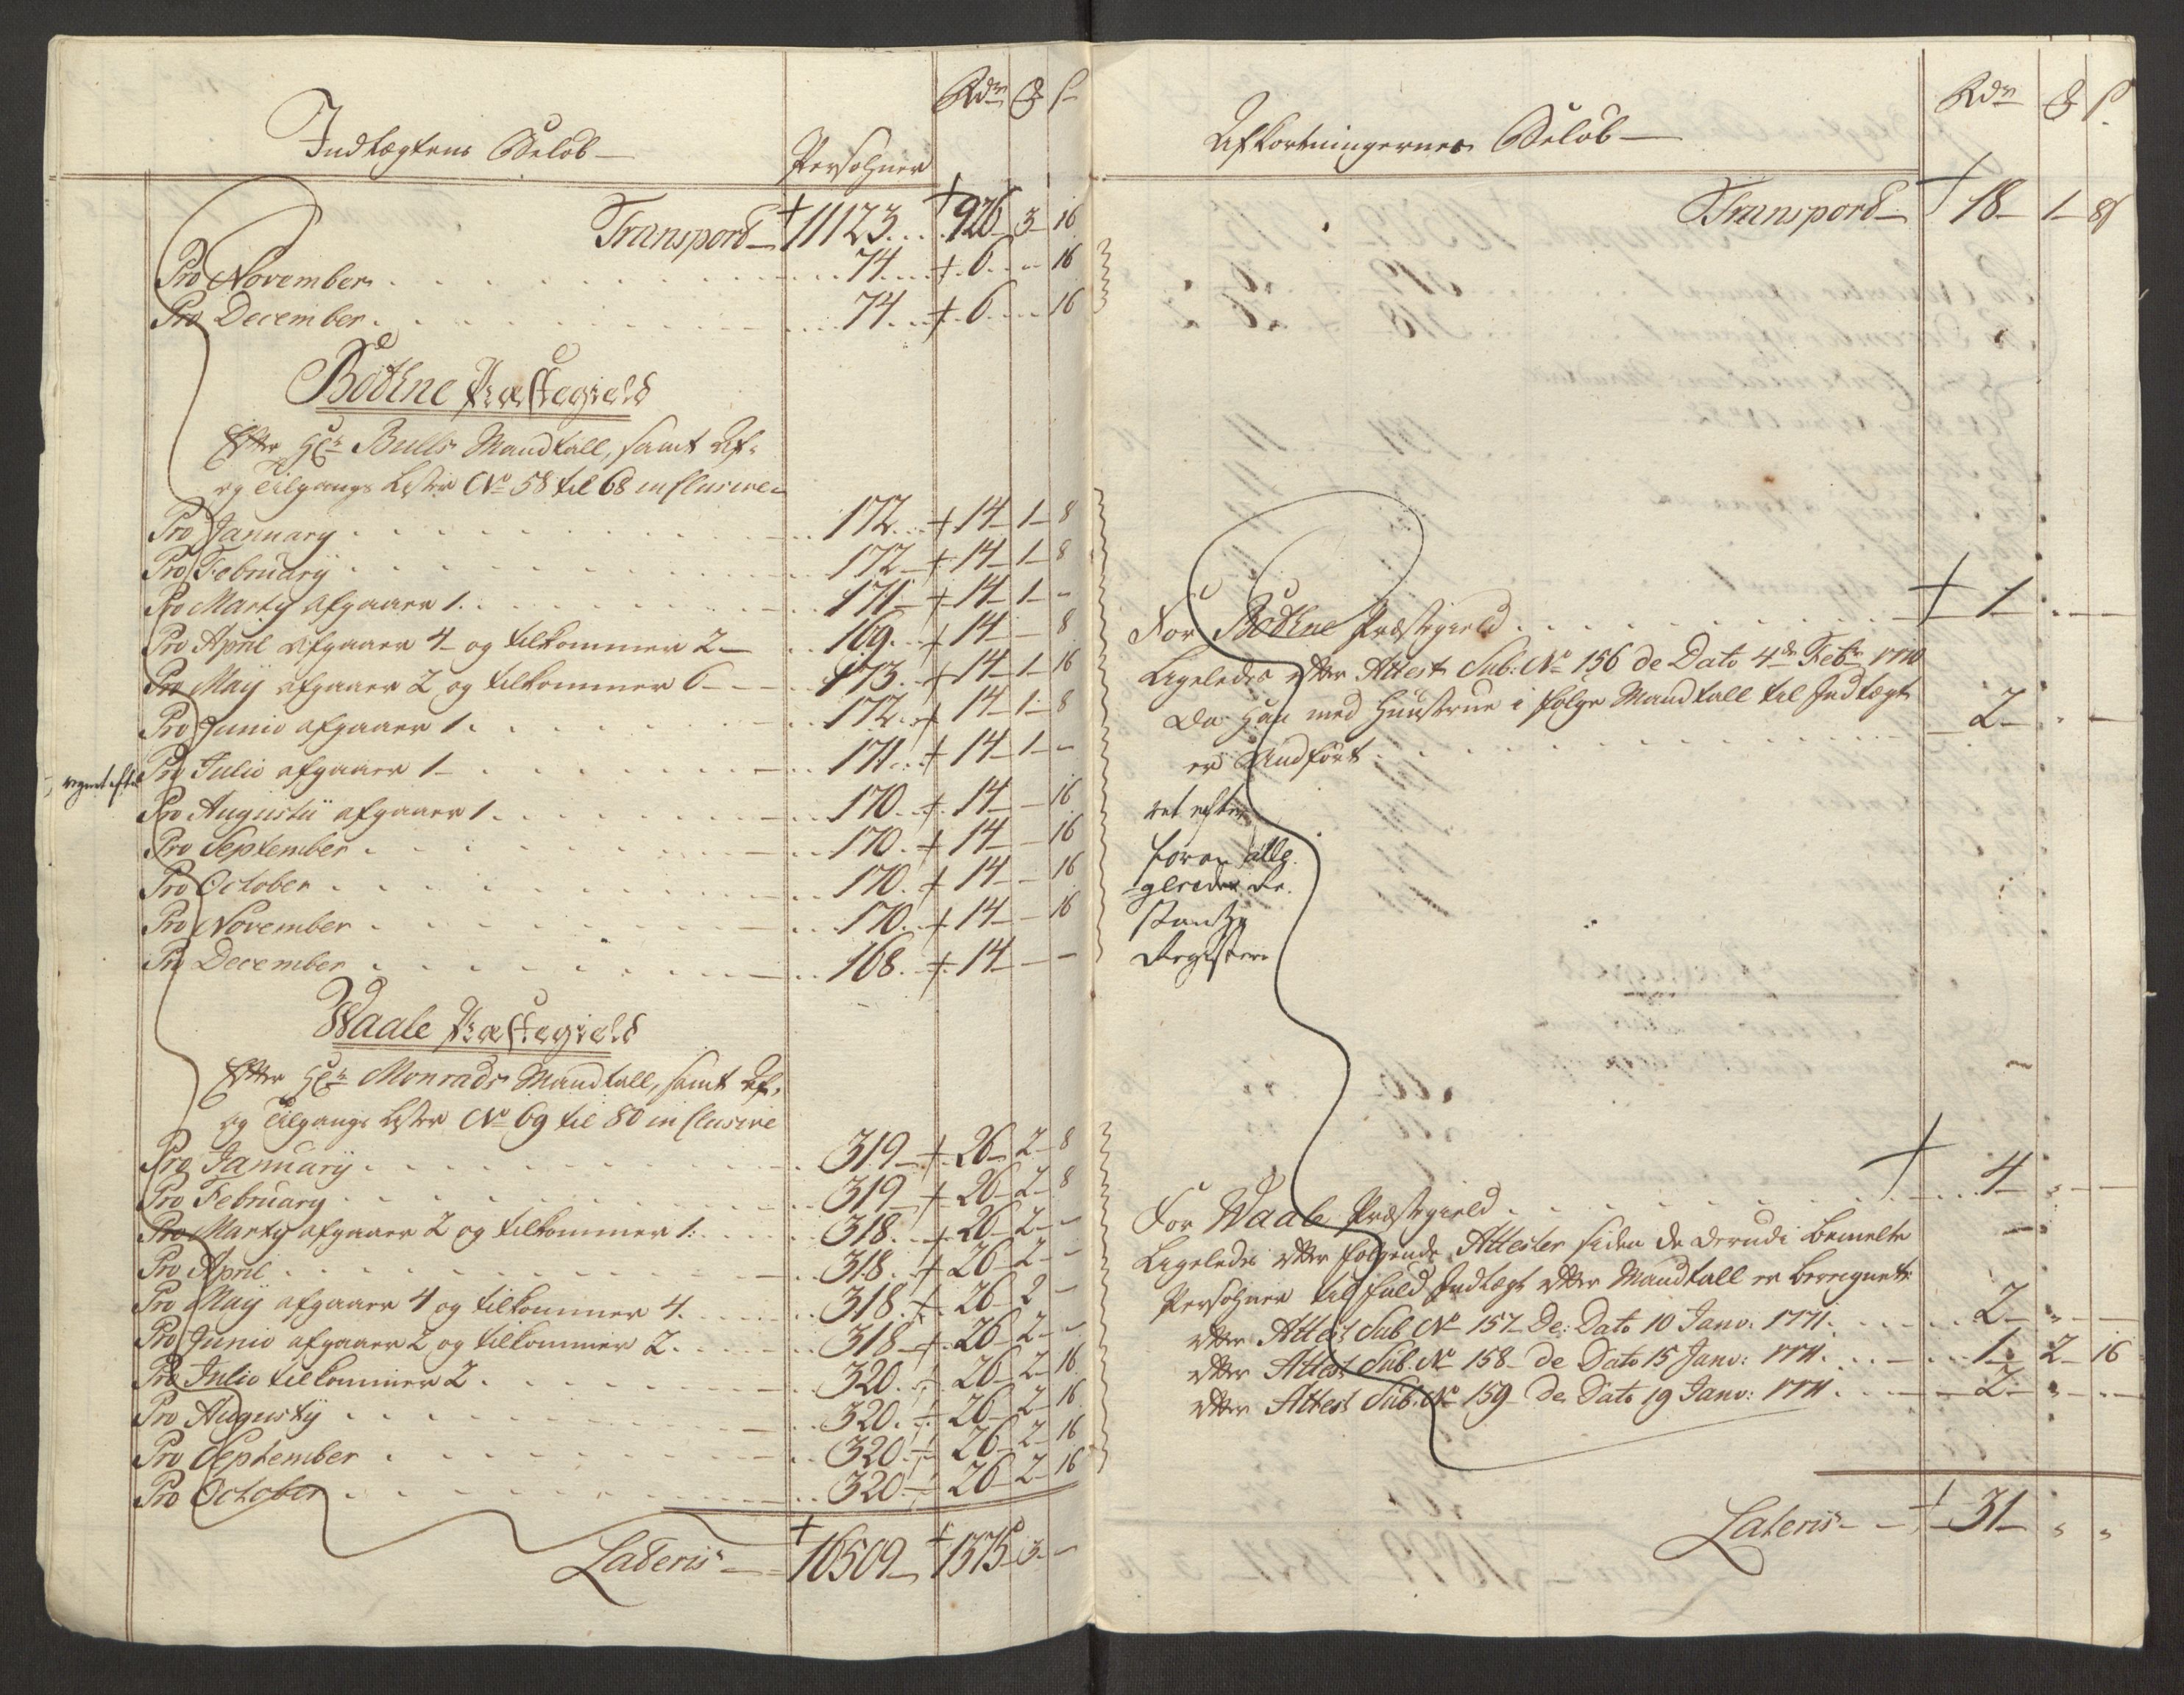 Indtægtens Beløb — Persohner Rdr ß
Transport — 11123 926 3 16
Pro November 74 6 16
Pro December 74 6 16
Bothne Præstegield
Efter Hr Bulls Mandtall, samt Af-
og Tilgangs Lister No 58 til 68 inclusive
Pro January 172 14 1 8
Pro February 172 14 1 8
Pro Marty afgaaer 1 171 14 1 -
Pro April afgaaer 4 og tilkommer 2 169 14 - 8
Pro May afgaaer 2 og tilkommer 6 173 14 1 16
Pro Junio afgaaer 1 172 14 1 8
Pro Julio afgaaer 1 171 14 1 -
Pro Augusty afgaaer 1 170 14 - 16
Pro September 170 14 - 16
Pro October 170 14 - 16
Pro November 170 14 - 16
Pro December 168 14 - -
Waale Præstegield
Efter Hr Monrads Mandtall, samt Af-
og Tilgangs Lister No 69 til 80 inclusive
Pro January 319 26 2 8
Pro February 319 26 2 8
Pro Marty afgaaer 2 og tilkommer 1 318 26 2 -
Pro April 318 26 2 -
Pro May afgaaer 4 og tilkommer 4 318 26 2 -
Pro Junio afgaaer 2 og tilkommer 2 318 26 2 -
Pro Julio tilkommer 2 320 26 2 16
Pro Augusty 320 26 2 16
Pro September 320 26 2 16
Pro October 320 26 2 16
Lateris — 16509 1375 3 -
Afkortningernes Beløb — Rdr ß
Transport — 18 1 8
For Bothne Præstegield 1 - -
Ligeledes efter Attest Sub. No 156 de Dato 4de Febr 1770
da han med Hustrue i følge Mandtall til Indtægt
er Andført 2 - -
For Waale Præstegield 4 - -
Ligeledes efter følgende Attester siden de derudi bemelte
Persohner til fuld Indtægt efter Mandtall er beregnet
efter Attest Sub No 157 De Dato 10 Janv: 1771 2 - -
efter Attest Sub. No 158 de Dato 15 Janv: 1771 1 2 16
efter Attest Sub. No 159 De Dato 19 Janv: 1771 2 - -
Lateris — 31 - -